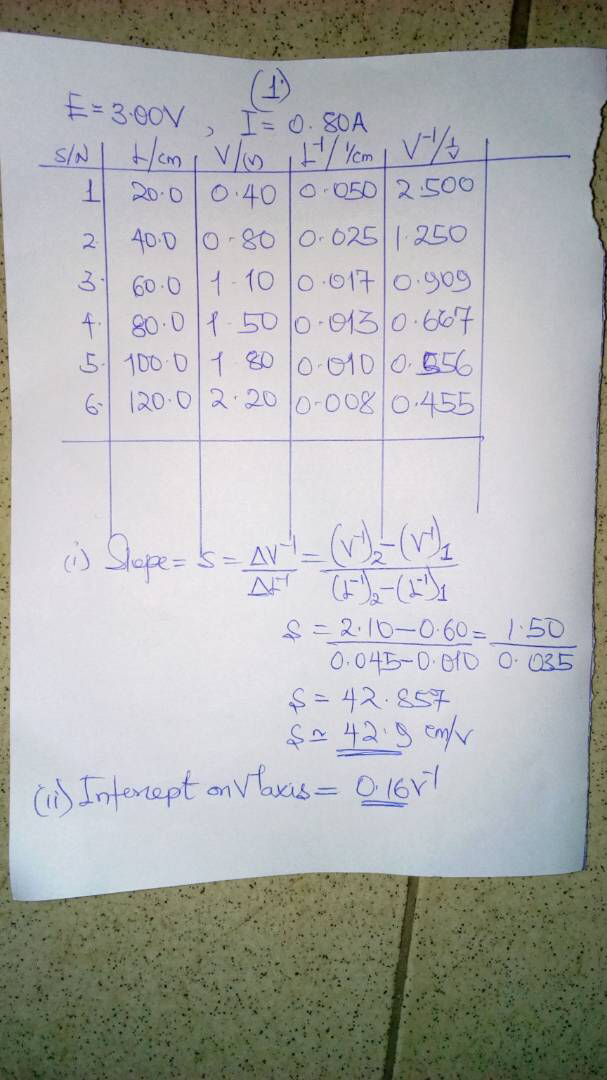 (1)
E = 3.00V , I = 0.80A
S/N L/cm V/(v) L⁻¹/ 1/cm V⁻¹/ 1/V
1 20.0 0.40 0.050 2.500
2. 40.0 0.80 0.025 1.250
3. 60.0 1.10 0.017 0.909
4. 80.0 1.50 0.013 0.667
5. 100.0 1.80 0.010 0.556
6. 120.0 2.20 0.008 0.455
(i) Slope = S = ΔV⁻¹/ΔL⁻¹ = (V⁻¹)₂-(V⁻¹)₁/(L⁻¹)₂-(L⁻¹)₁
S = 2.10-0.60/0.045-0.010 = 1.50/0.035
S = 42.857
S ≃ 42.9 cm/v
(ii) Intercept on V⁻¹axis = 0.16V⁻¹